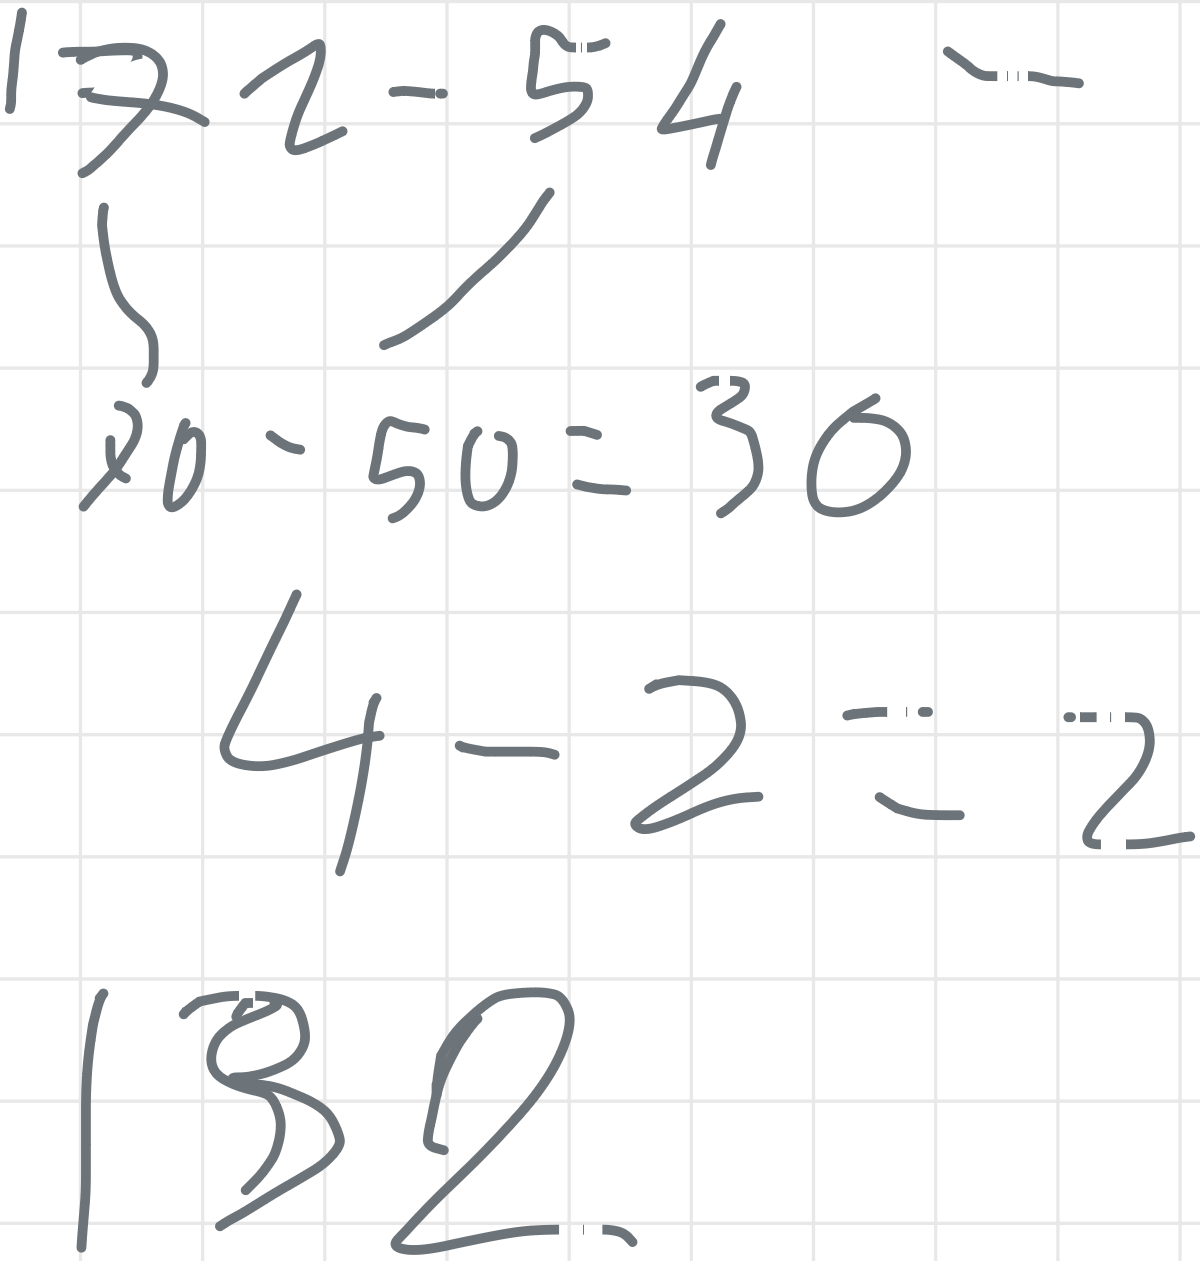 172 - 54 -
80 - 50 = 30
4 - 2 = 2
132